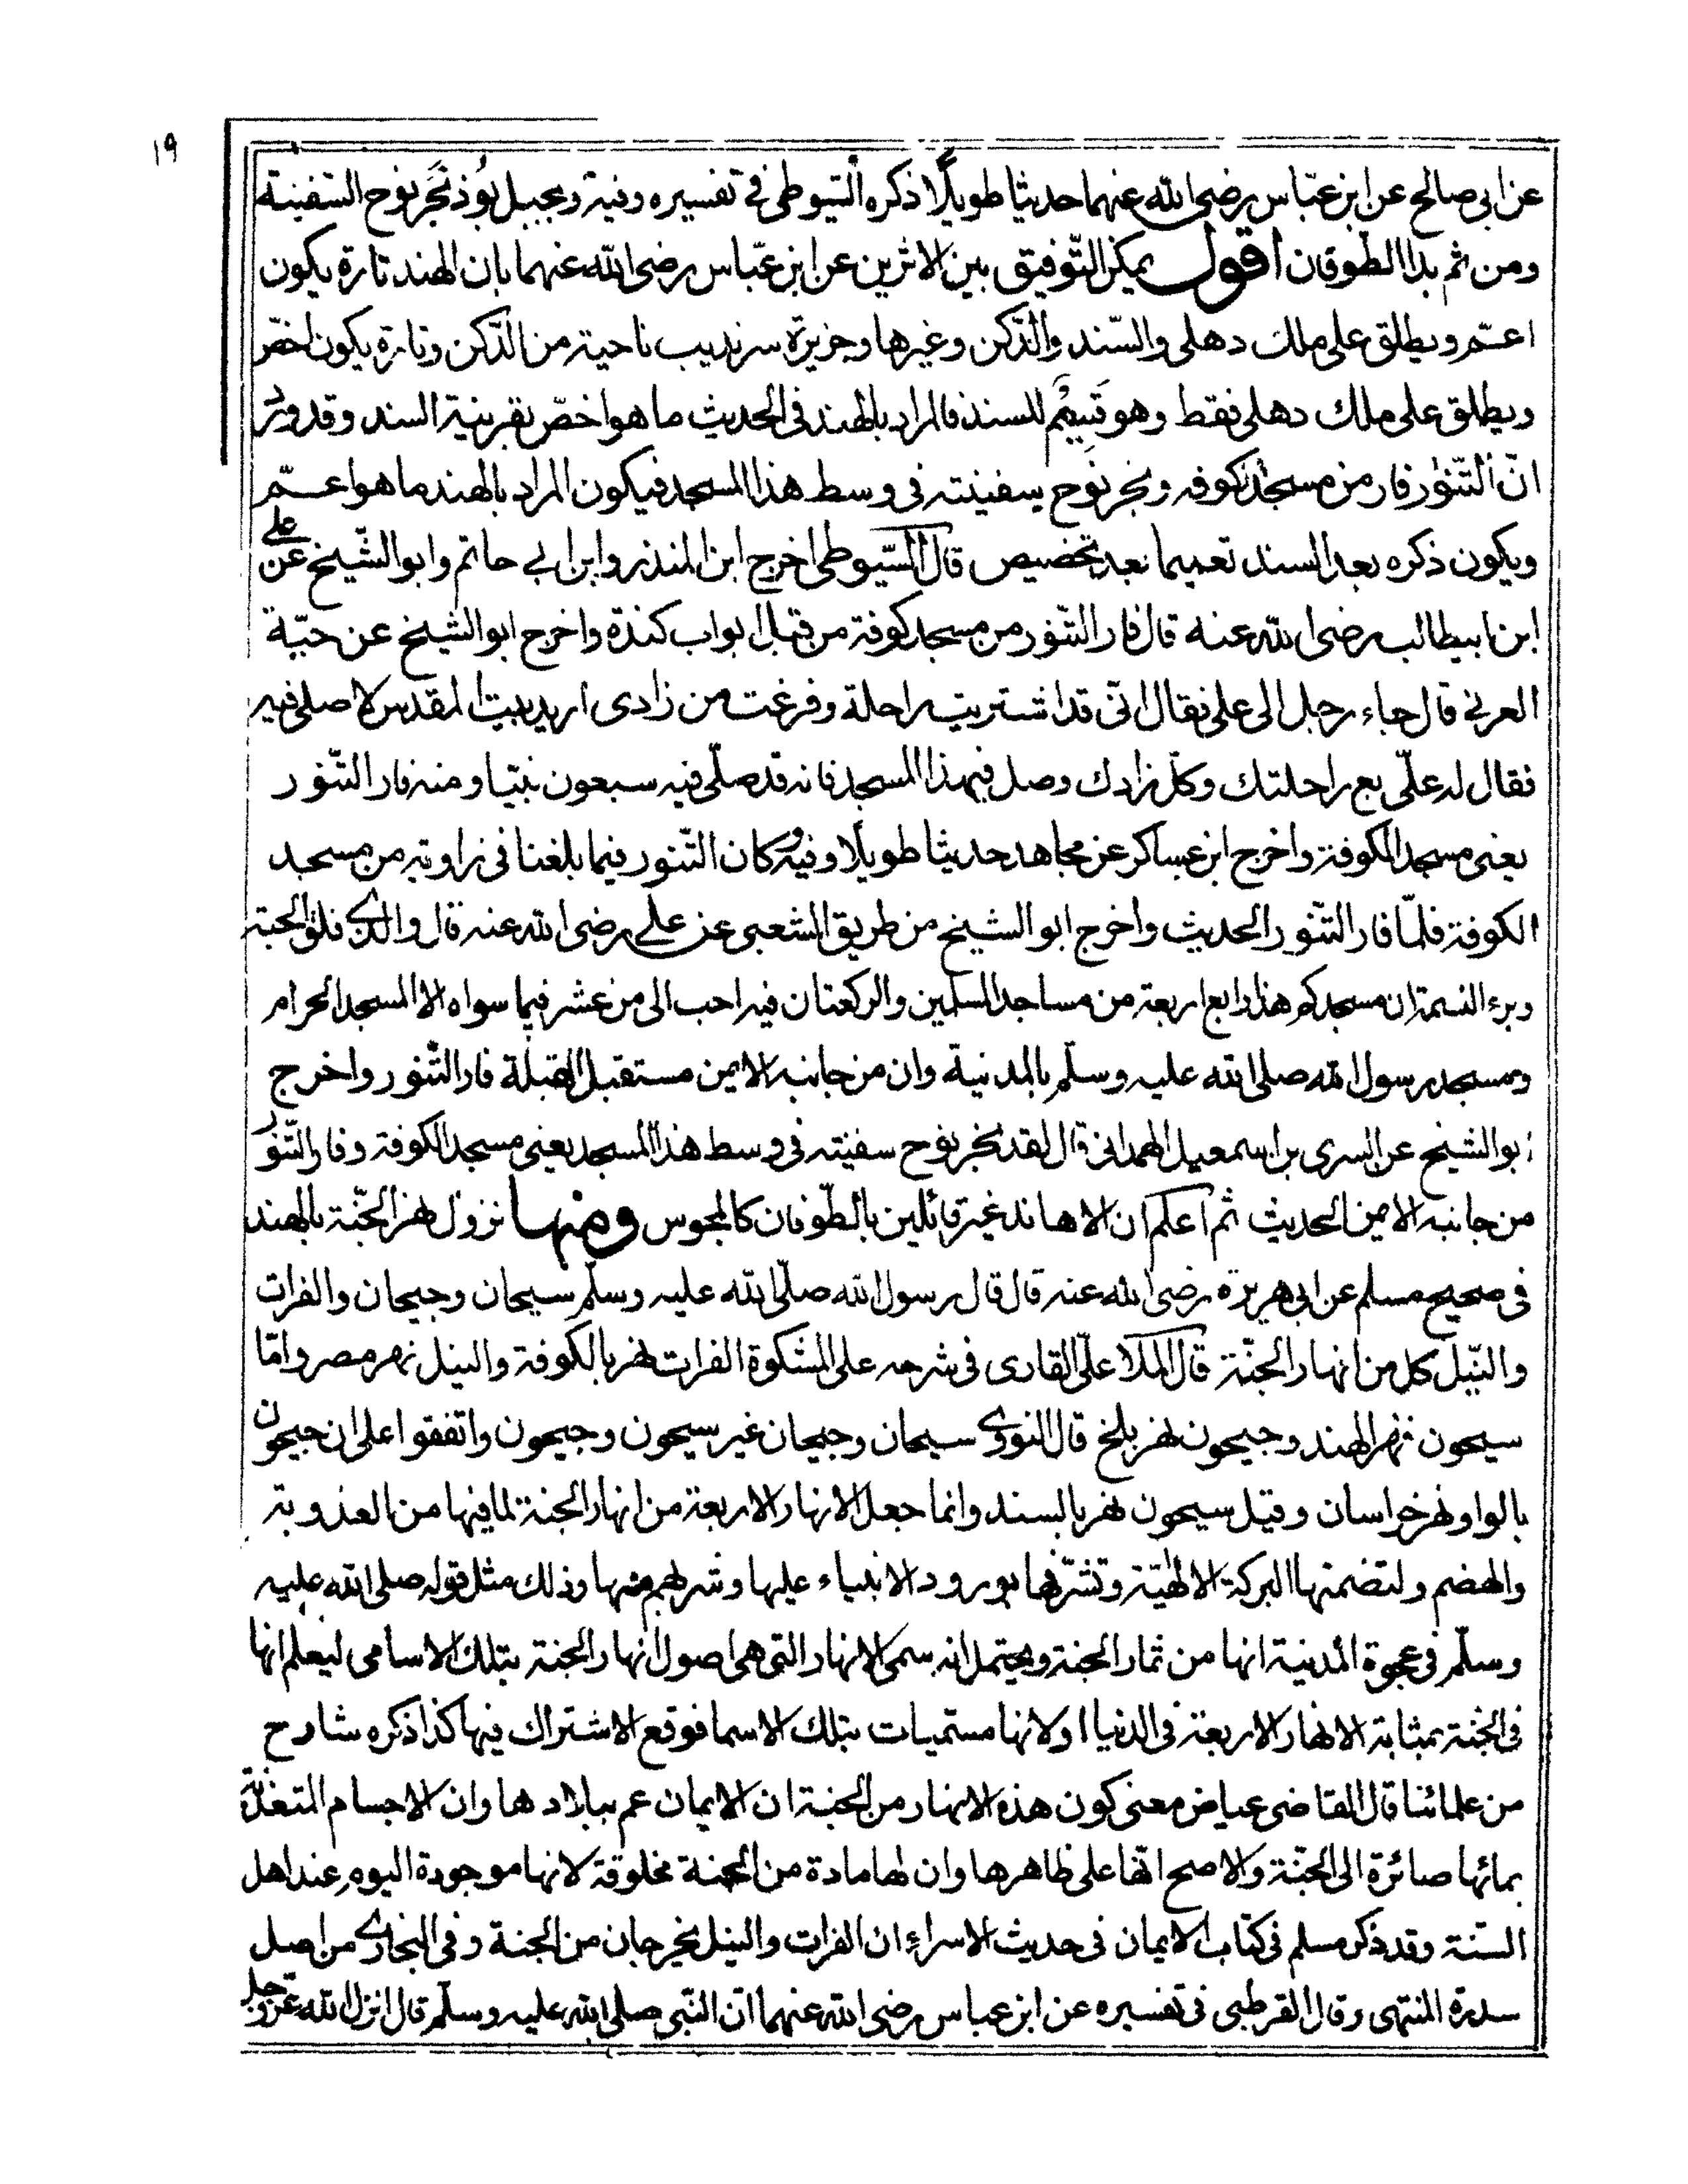 ١٩
عن ابی صالح عن ابن عبّاس رضی الله عنهما حدیثا طویلًا ذکره السّیوطی فی تفسیره وفیه وبجبل بُوذ نَجَر نوح السّفینة
ومن ثم بدا الطّوفان اقول یمکن التّوفیق بین الاثرین عن ابن عبّاس رضی الله عنهما بان الهند تارة یکون
اعمّ ویطلق علی ملک دهلی والسّند والدّکن وغیرها وجزیرة سرندیب ناحیة من الدّکن وتارة یکون اخصّ
ویطلق علی ملک دهلی فقط وهو قَسِیمٌ للسند فالمراد بالهند فی الحدیث ما هو اخصّ بقرینة السند وقد ورد
انّ التّنّور فار من مسجد کوفه ونجر نوح سفینته فی وسط هذا المسجد فیکون المراد بالهند ما هو اعمّ
ویکون ذکره بعد السند تعمیما بعد تخصیص قال السّیوطی اخرج ابن المنذر وابن ابی حاتم وابو الشّیخ عن علی
ابن ابیطالب رضی الله عنه قال فار التّنور من مسجد کوفة من قبل ابواب کندة واخرج ابو الشیخ عن حبّة
العرنی قال جاء رجل الی علی فقال انّی قد اشتریت راحلة وفرغت من زادی ارید بیت المقدس لاصلی فیه
فقال له علّی بع راحلتک وکل زادک وصل فی هذا المسجد فانه قد صلّی فیه سبعون نبیّا ومنه فار التّنور
یعنی مسجد الکوفة واخرج ابن عساکر عن مجاهد حدیثا طویلًا وفیه وکان التّنور فیما بلغنا فی زاویة من مسجد
الکوفة فلمّا فار التّنور الحدیث واخرج ابو الشیخ من طریق الشعبی عن علی رضی الله عنه قال والذی فلق الحبة
وبرء النسمة ان مسجدکم هذا رابع اربعة من مساجد المسلمین والرکعتان فیه احب الی من عشر فیما سواه الا المسجد الحرام
ومسجد رسول الله صلی الله علیه وسلّم بالمدینة وان من جانبه الایمن مستقبل القبلة فار التّنور واخرج
ابو الشیخ عن السری بن اسمعیل الهمدانی قال لقد نجر نوح سفینته فی وسط هذا المسجد یعنی مسجد الکوفة وفار التّنور
من جانبه الایمن الحدیث ثم اعلم ان الاهاند غیر قائلین بالطّوفان کالمجوس ومنها نزول نهر الجّنة بالهند
فی صحیح مسلم عن ابی هریرة رضی الله عنه قال قال رسول الله صلّی الله علیه وسلّم سیحان وجیحان والفرات
والنّیل کل من انهار الجنّة قال الملا علّی القاری فی شرحه علی المشکوة الفرات نهر بالکوفة والنیل نهر مصر وامّا
سیحون نهر الهند وجیحون نهر بلخ قال النووی سیحان وجیحان غیر سیحون وجیحون واتفقوا علی ان جیحون
بالواو نهر خراسان وقیل سیحون نهر بالسند وانما جعل الانهار الاربعة من انهار الجنة لما فیها من العذوبة
والهضم ولتضمنها البرکة الالهیّة وتشرّفها بورود الانبیاء علیها وشربهم منها وذلک مثل قوله صلی الله علیه
وسلّم فی عجوة المدینة انها من ثمار الجنة ویحتمل انه سمی الانهار التی هی اصول انهار الجنة بتلک الاسامی لیعلم انها
فی الجنة بمثابة الانهار الاربعة فی الدنیا او لانها مسمّیات بتلک الاسما فوقع الاشتراک فیها کذا ذکره شارح
من علمائنا قال القاضی عیاض معنی کون هذه الانهار من الجنة ان الایمان عم ببلادها وان الاجسام المتغذیة
بمائها صائرة الی الجنّة والاصح انّها علی ظاهرها وان لها مادة من الجنة مخلوقة لانها موجودة الیوم عند اهل
السّنة وقد ذکر مسلم فی کتاب الایمان فی حدیث الاسراء ان الفرات والنیل یخرجان من الجنة وفی البخاری من اصل
سدرة المنتهی وقال القرطبی فی تفسیره عن ابن عباس رضی الله عنهما انّ النّبی صلی الله علیه وسلّم قال انزل الله عزوجل